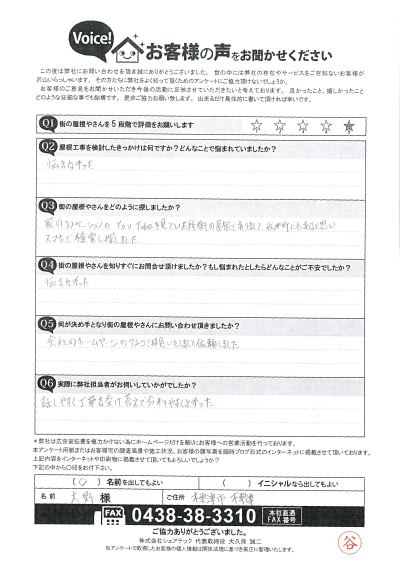 Voice!
お客様の声をお聞かせください
この度は弊社にお問い合わせを頂き誠にありがとうございました。世の中には弊社の存在やサービスをご存知ないお客様が
沢山いらっしゃいます。その方たちに弊社をよく知って頂くためのアンケートにご協力頂けないでしょうか。
お客様のご意見をお聞かせいただき今後の活動に反映させていただきたいと考えております。良かったこと、嬉しかったこと
どのような些細な事でも結構です。是非ご協力お願い致します。出来るだけ具体的に書いて頂ければ幸いです。
Q1 街の屋根やさんを5段階で評価をお願いします
Q2 屋根工事を検討したきっかけは何ですか?どんなことで悩まれていましたか?
悩まなかった
Q3 街の屋根やさんをどのように探しましたか?
家のリノベーションの You Tubeを見ていた時街の屋根
スマホで検索し探しました
Q4 街の屋根やさんを知りすぐにお問合せ頂けましたか?もし悩まれたとしたらどんなことがご不安でしたか?
悩まなかった
Q5 何が決め手となり街の屋根やさんにお問い合わせ頂きましたか?
会社のホームページのクチコミ
依頼しました
Q6 実際に弊社担当者がお伺いしていかがでしたか?
話しやすく丁寧な受け答えで分かりやすくよかった
*弊社は広告宣伝費を極力かけない為にホームページだけを頼りにお客様への営業活動を行っております。
本アンケート用紙またはお客様宅の調査風景や施工状況、お客様の顔写真を随時ブログ形式のインターネットに掲載させて頂いております。
上記内容をインターネットや印刷物に掲載させて頂いてもよろしいでしょうか?
下記の中から〇印をお付下さい。
(〇)名前を出してもよい ( )イニシャルなら出してもよい
名前 大野 様 ご住所
FAX 0438-38-3310 本社直通 FAX番号
ご協力ありがとうございました。
株式会社シェアテック 代表取締役 大久保 誠二
当アンケートで取得したお客様の個人情報は関係法規に基づき厳正に管理いたします。
谷